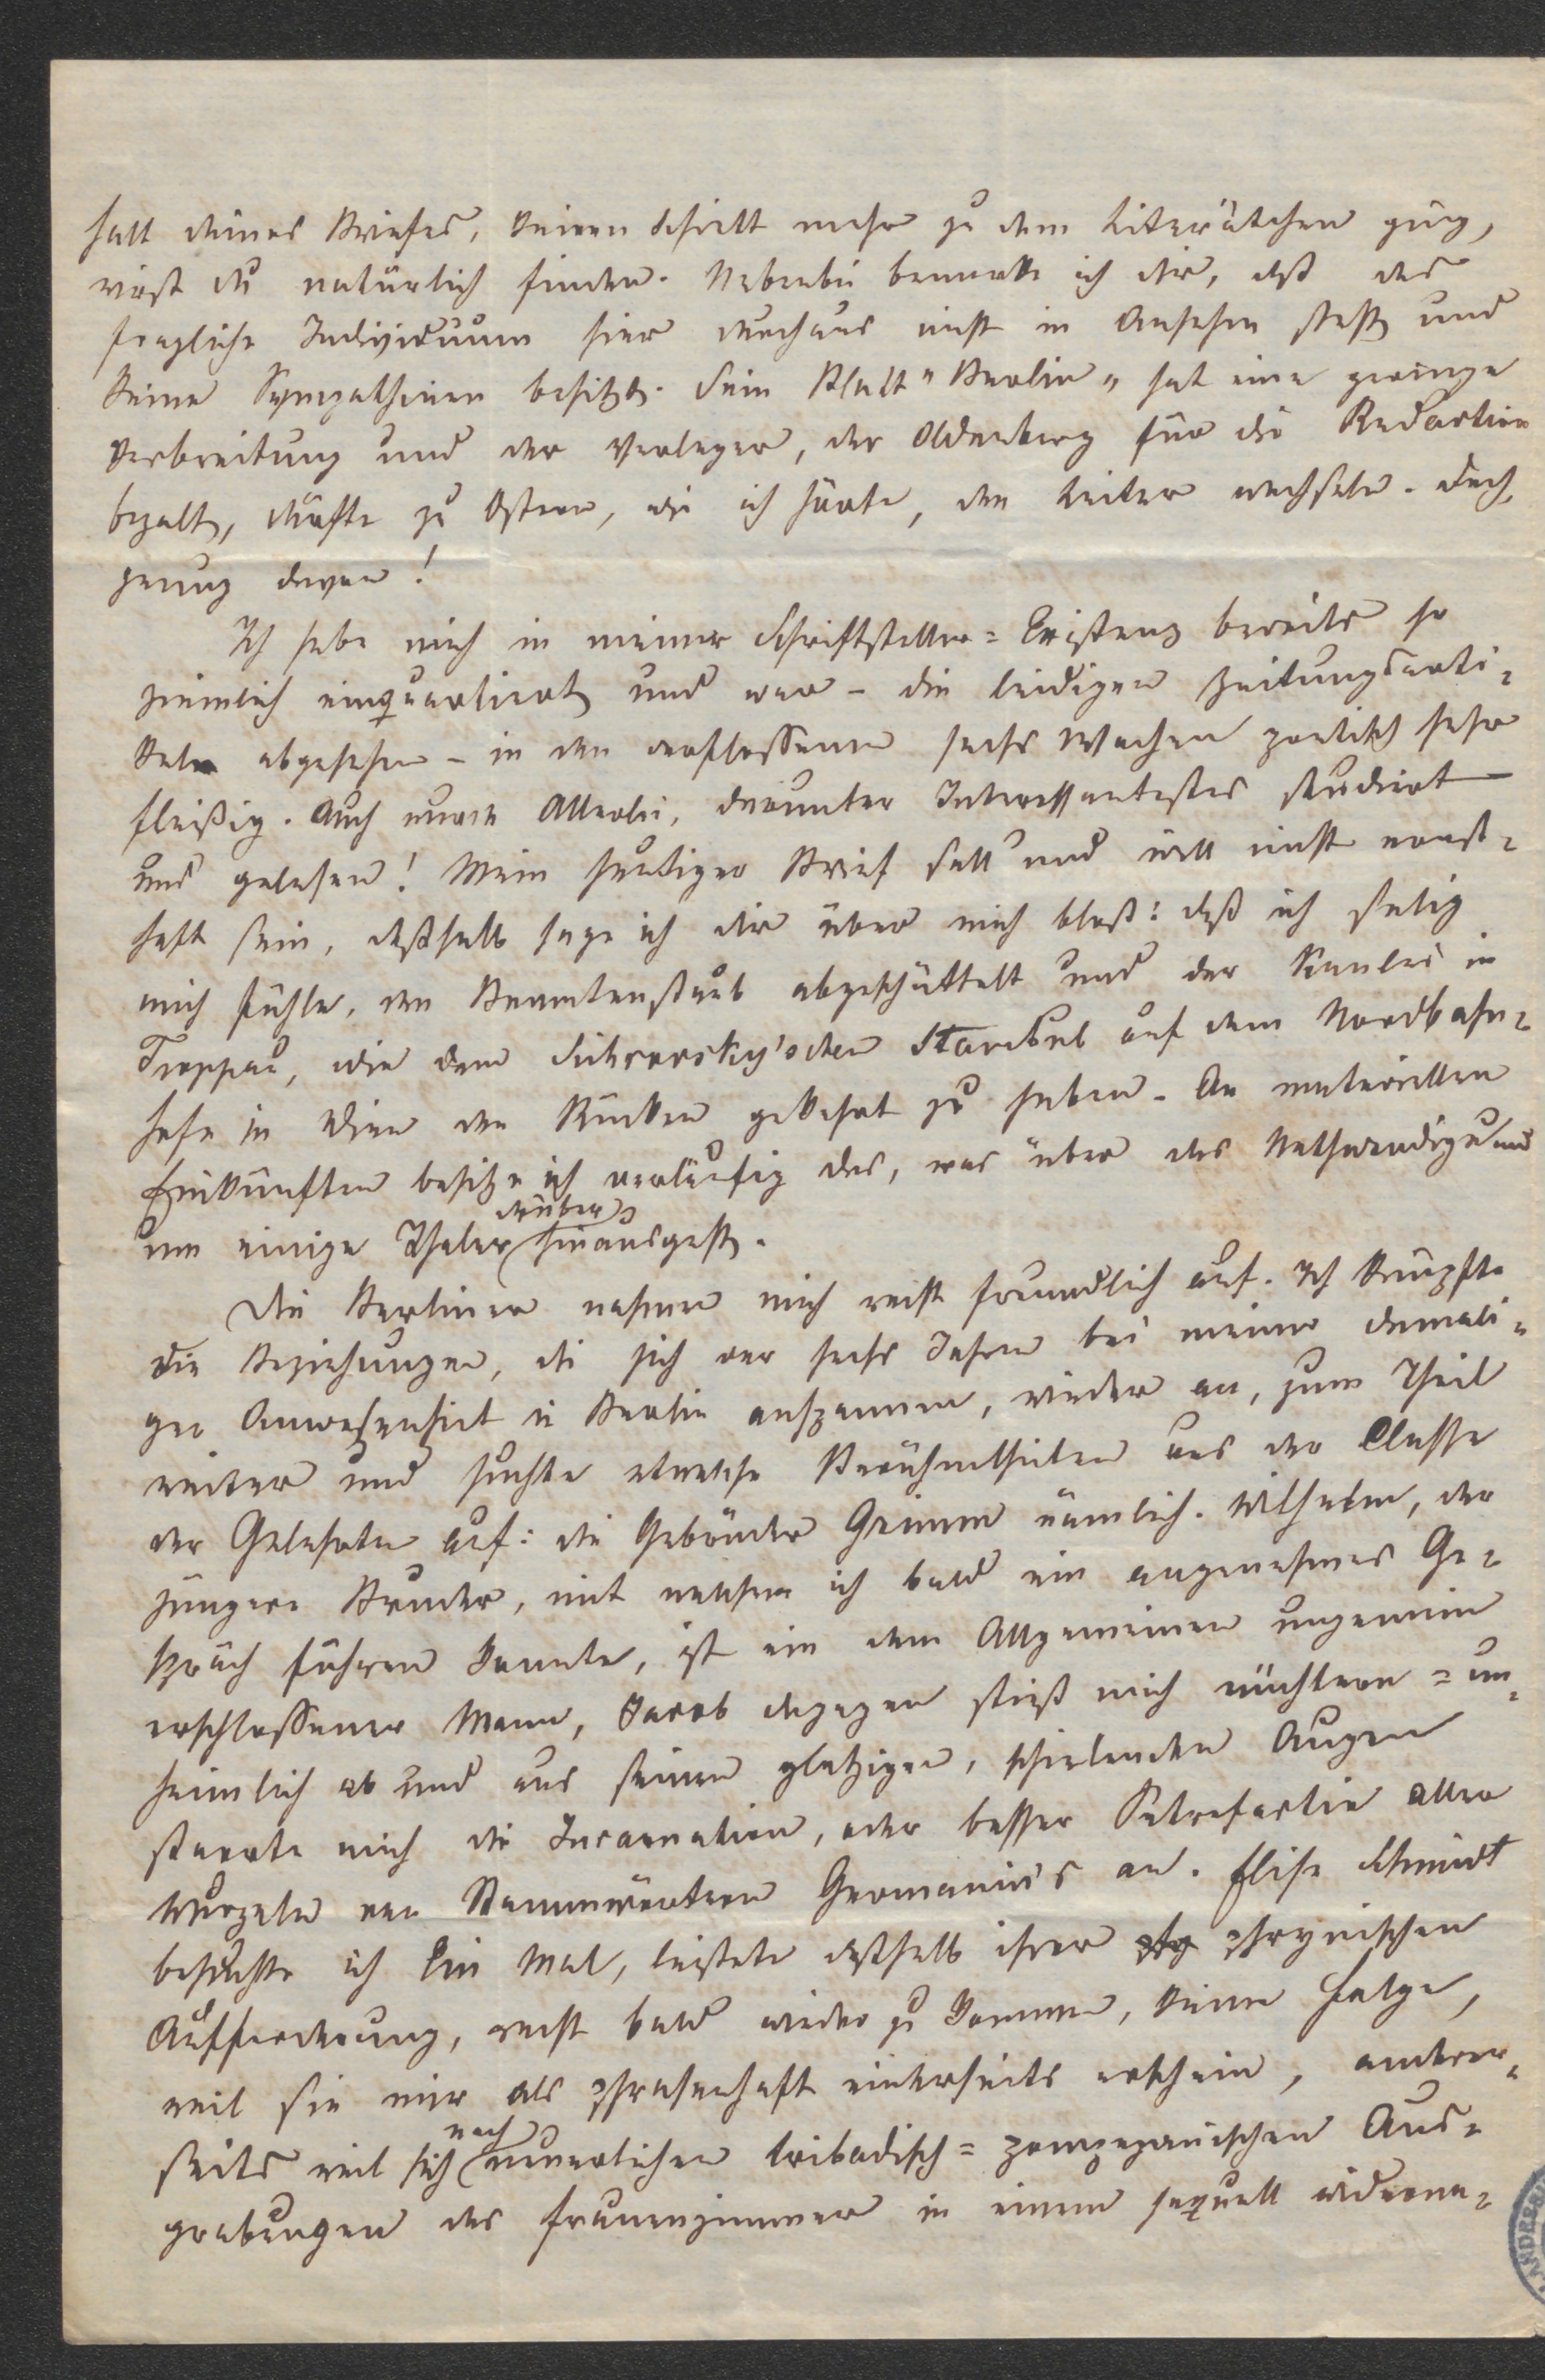 halt deines Briefes, keinen Schritt mehr zu dem Literätchen ging,
wirst du natürlich finden. Nebenbei bemerke ich dir, daß das
fragliche Individuum hier durchaus nicht in Ansehen steht und
keine Sympathieen besitzt. Sein Blatt "Berlin" hat eine geringe
Verbreitung und der Verleger, der Oldenberg für die Redaction
bezalt, dürfte zu Ostern, wie ich hörte, den Leiter wechseln. Doch
genug davon!
Ich habe mich in meiner Schriftsteller=Existenz bereits so
ziemlich einquartiert und war - die leidigen Zeitungsarti=
keln abgesehen - in den verflossenen sechs Wochen poetisch sehr
fleißig. Auch wurde Allerlei, darunter Interessantestes studiert
und gelesen! Mein heutiger Brief soll und will nicht ernst=
haft sein, deßhalb sage ich dir über mich bloß: daß ich selig
mich fühle, den Beamtenstaub abgeschüttelt und der Kanzlei in
Troppau, wie dem schen auf dem Nordbahn=
hofe in Wien den Rücken gekehrt zu haben. An materiellen
Einkünften besitze ich vorläufig das, was über das Nothwendige und
um einige Thaler drüber hinausgeht.
Die Berliner nahmen mich recht freundlich auf. Ich knüpfte
die Beziehungen, die sich vor sechs Jahren bei meiner damali=
gen Anwesenheit in Berlin anspannen, wieder an, zum Theil
weiter und suchte etwelche Berühmtheiten aus der Classe
der Gelehrten auf: die Gebrüder Grimm nämlich. Wilhelm, der
jüngere Bruder, mit welchem ich bald ein angenehmes Ge=
spräch führen konnte, ist ein dem Allgemeinen ungemein
erschlossener Mann, Jacob dagegen stieß mich nüchtern = un=
heimlich ab und aus seinen glotzigen, schielenden Augen
starrte mich die Incarnation, oder besser Petrefactin aller
Wurzeln von Stammwörtern Germanias an. Elise Schmidt
besuchte ich Ein Mal, leistete deßhalb ihrer phrynischen
Aufforderung, recht bald wieder zu kommen, keine Folge,
weil sie mir als phrasenhaft einerseits erschien, anderer=
seits weil sich nach neuerlichen tribadisch = pompejanischen Aus=
grabungen das Frauenzimmer in einem sexuell widerna=